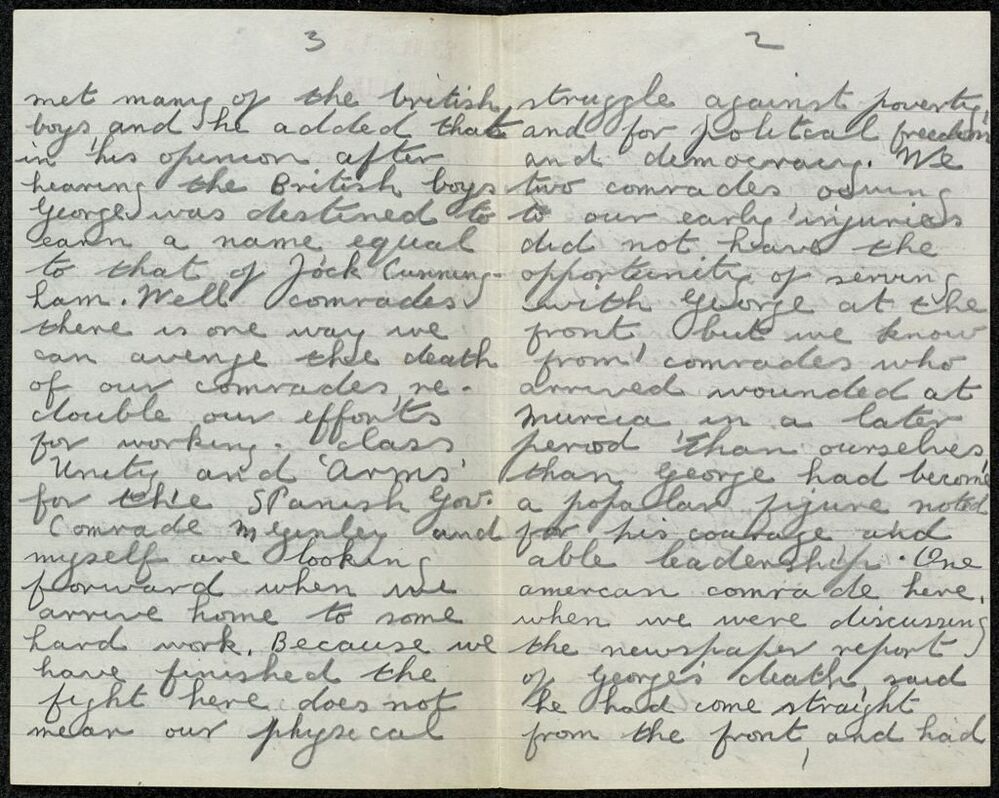 2
struggle against poverty,
and for politcal freedom
and democracy. We
two comrades owing
to our early injuries
did not have the
opportunity of serving
with George at the
front, but we know
from comrades who
arrived wounded at
Murcia, in a later
period than ourselves,
than George had become
a popular figure noted
for his courage and
able leadership. One
amercan comrade here,
when we were discussing
the newspaper report
of George's death, said
he had come straight
from the front, and had
3
met many of the british
boys, and he added that
in his openion after
hearing the British boys
George was destined to
earn a name equal
to that of Jock Cunning-
ham. Well comrades
there is one way we
can avenge the death
of our comrades, re-
double our efforts
for working-class
Unity and 'Arms'
for the Spanish Gov.
Comrade McGinley and
myself are looking
forward when we
arrive home to some
hard work. Because we
have finished the
fight here does not
mean our physical